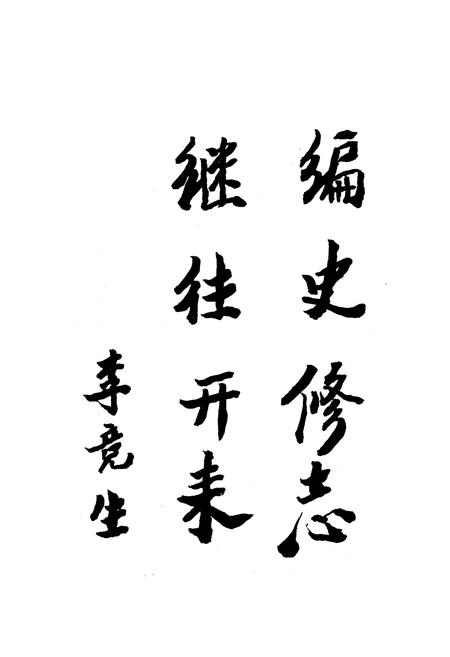 编史修志
继往开来
李竟生